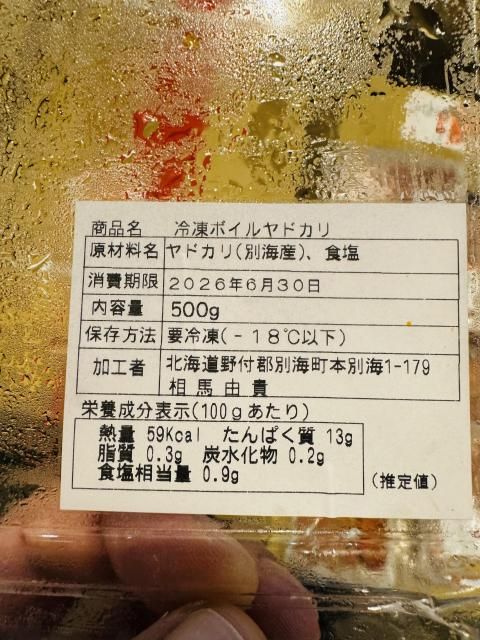 商品名 冷凍ボイルヤドカリ
原材料名 ヤドカリ(別海産)、食塩
消費期限 2026年6月30日
内容量 500g
保存方法 要冷凍(-18℃以下)
加工者 北海道野付郡別海町本別海1-179
相馬由貴
栄養成分表示(100gあたり)
熱量 59Kcal たんぱく質 13g
脂質 0.3g 炭水化物 0.2g
食塩相当量 0.9g
(推定値)